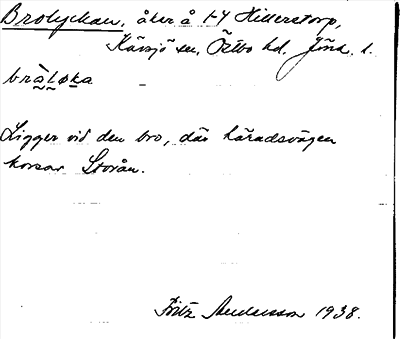 Brolyckan, åker å 1-4 Hillerstorp,
Kävsjö sn, Östbo hd, Jönk. l.
bràl̰øka
Ligger vid den bro, där häradsvägen
korsar Storån.
Fritz Andersson 1938.